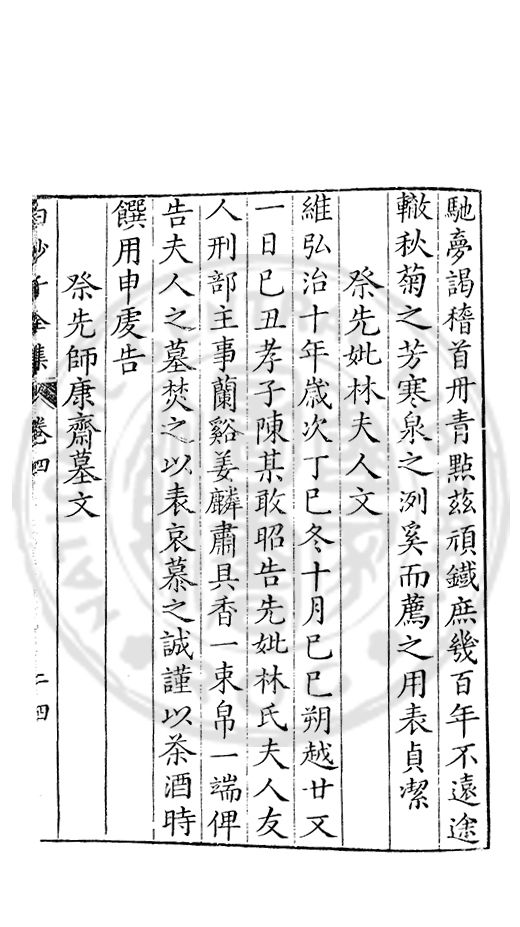 馳夢謁稽首丹青點茲頑鐵庶幾百年不遠途
轍秋菊之芳寒泉之洌奚而薦之用表貞潔
祭先妣林夫人文
維弘治十年歲次丁巳冬十月己巳朔越廿又
一日己丑孝子陳某敢昭告先妣林氏夫人友
人刑部主事蘭谿姜麟肅具香一束帛一端俾
告夫人之墓焚之以表哀慕之誠謹以茶酒時
饌用申虔告
祭先師康齋墓文
白沙子全集 卷四 二四